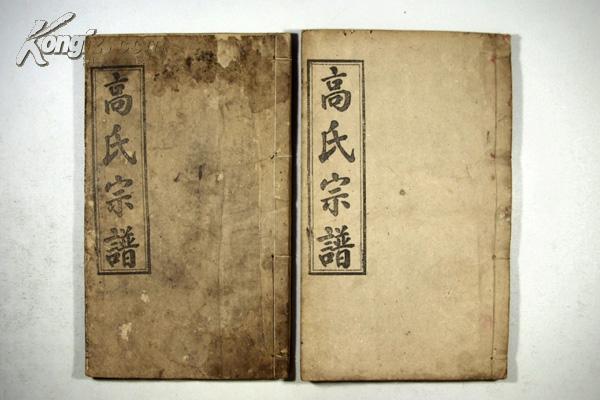 Kongfz.com
高氏宗譜
高氏宗譜